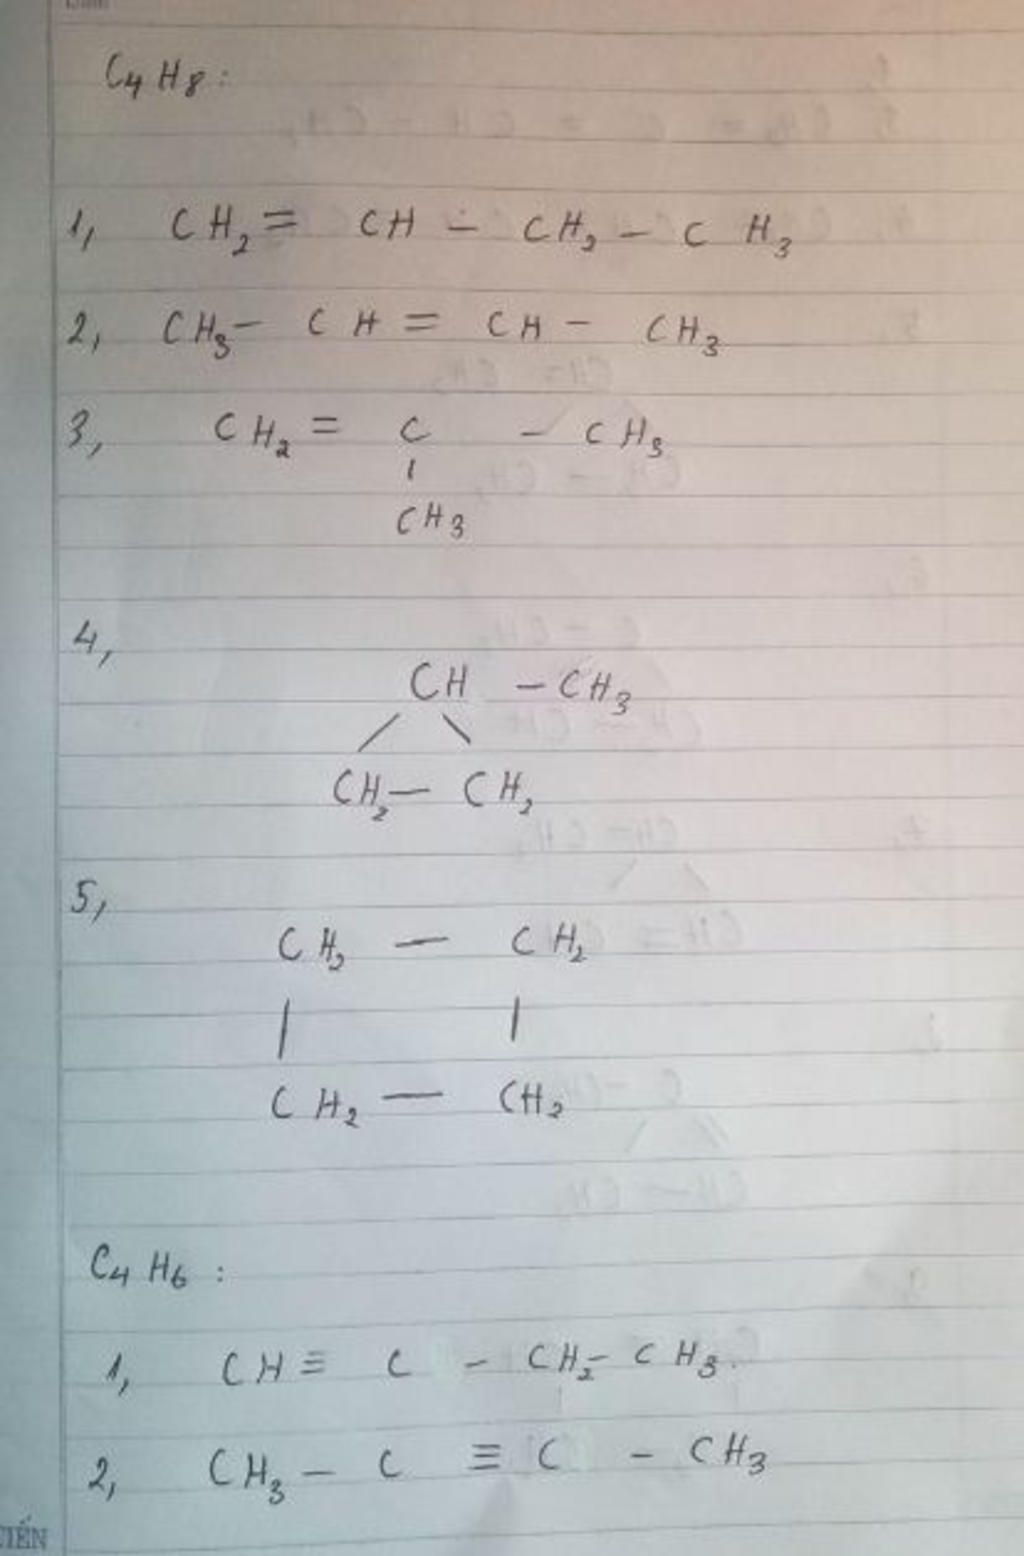 C₄H₈:
1, CH₂ = CH - CH₂ - CH₃
2, CH₃ - CH = CH - CH₃
3, CH₂ = C - CH₃
|
CH₃
4,
CH - CH₃
/ \
CH₂ - CH₂
5,
CH₂ — CH₂
| |
CH₂ — CH₂
C₄H₆:
1, CH ≡ C - CH₂ - CH₃
2, CH₃ - C ≡ C - CH₃